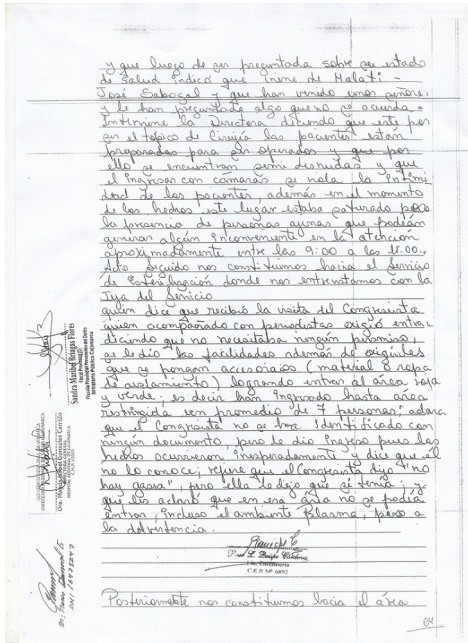 y que luego de ser preguntada sobre su estado
de salud indicó que viene de Malati-
José Sabogal y que han venido unos señores
y le han preguntado algo que no se acuerda.
Interviene la Directora diciendo que este por
ser el tópico de Cirugía las pacientes están
preparadas para ser operados y que por
ello se encuentran semi desnudas y que
el ingresar con cámaras se viola la intimi
dad de los pacientes, además en el momento
de los hechos este lugar estaba saturado por
la presencia de personas ajenas que podían
generar algún inconveniente en la atención
aproximadamente entre las 9:00 a las 11:00.
Acto seguido nos constituimos hacia el Servicio
de Esterilización donde nos entrevistamos con la
Jefa del Servicio
quien dice que recibió la visita del Congresista
quien acompañado con periodistas exigió entrar
diciendo que no necesitaba ningún permiso,
se le dio las facilidades además de exigirles
que se pongan accesorios (material o ropa
de aislamiento) logrando entrar al área roja
y verde; es decir han ingresado hasta área
restringida en promedio de 7 personas, aclara
que el Congresista no se ha identificado con
ningún documento, pero le dio ingreso pues los
hechos ocurrieron inesperadamente y dice que él
no lo conoce; refiere que el Congresista dijo "no
hay gasa", pero ella le dijo que sí tenía; y
que les aclaró que en esa área no se podía
entrar, incluso el ambiente Plasma, pese a
la advertencia.
Lic. Enfermería
C.E.P. Nº 6892
Posteriormente nos constituimos hacia el área
Sandra Maribel Bringas Flores
Fiscal Provincial (P)
Fiscalía Provincial Prevención del Delito
Ministerio Público-Cajamarca
04